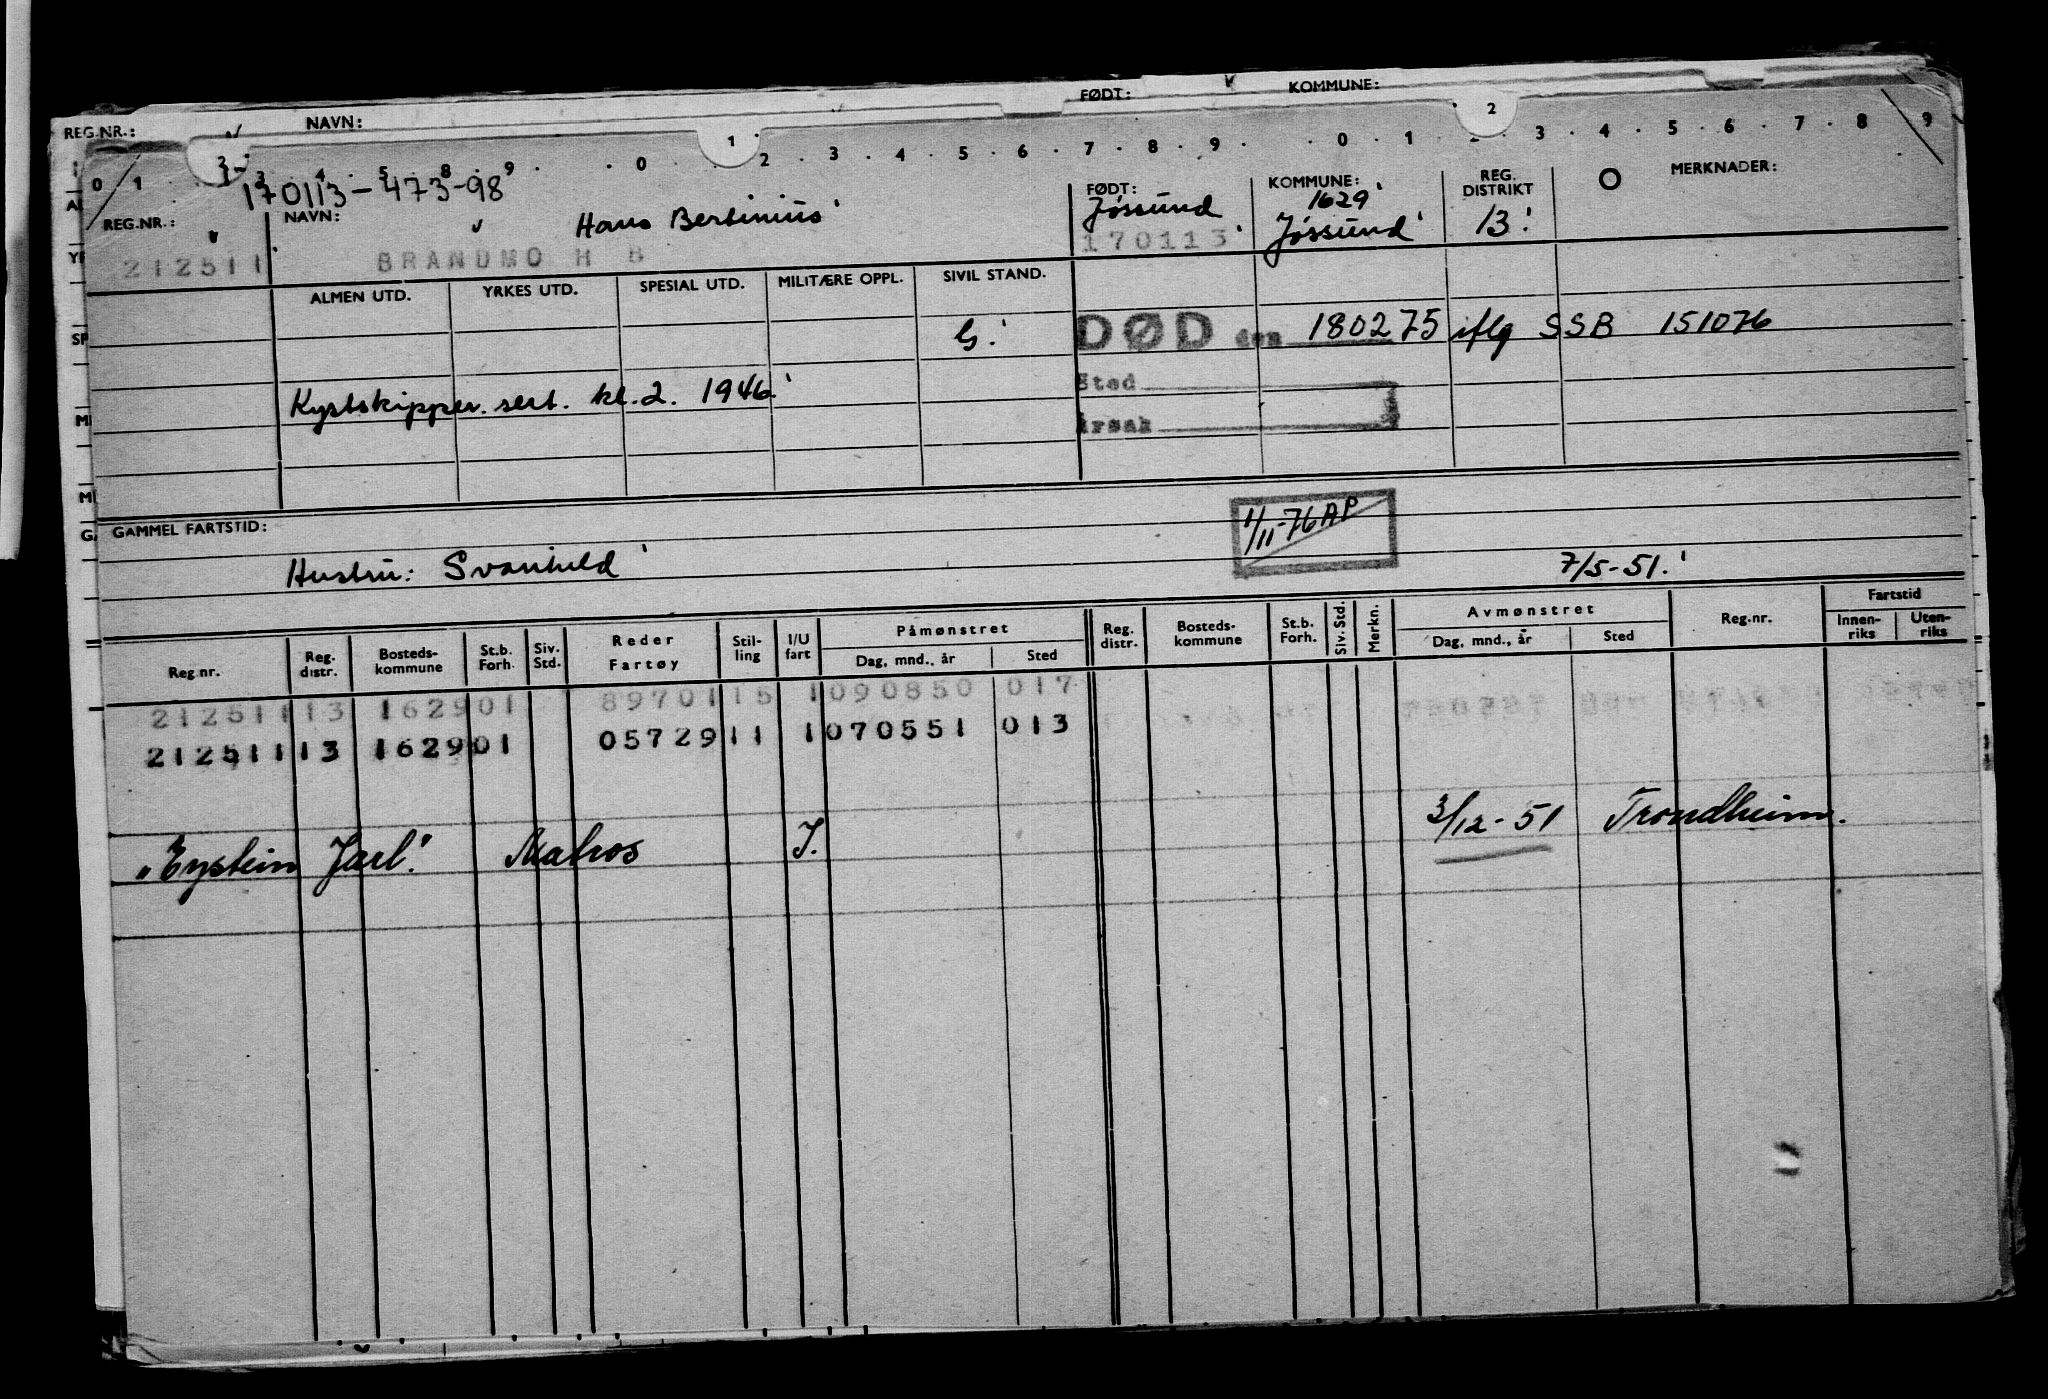 FØDT: KOMMUNE:
REG.NR.: NAVN:
0 1 3 4 5 8 9 0 1 2 3 4 5 6 7 8 9 0 1 2 3 4 5 6 7 8 9
170113-473-98
MERKNADER:
REG.NR.: NAVN: FØDT: KOMMUNE: REG. DISTRIKT
Hans Bertinius Jøssund 1629 Jøssund 13
212511 BRANDMO H B 170113
ALMEN UTD. YRKES UTD. SPESIAL UTD. MILITÆRE OPPL. SIVIL STAND.
G. DØD den 180275 iflg SSB 151076
Kystskipper sert. kl. 2. 1946. Sted
Årsak
GAMMEL FARTSTID:
1/11-76 AP
Hustru: Svanhild 7/5-51.
Reg.nr. Reg. distr. Bosteds-kommune St.b. Forh. Siv. Std. Reder Fartøy Stil-ling I/U fart Påmønstret Dag, mnd., år Sted Reg. distr. Bosteds-kommune St.b. Forh. Siv. Std. Merkn. Avmønstret Dag, mnd., år Sted Reg.nr. Fartstid Innen-riks Uten-riks
212511 13 1629 01 89701 15 1 090850 017
212511 13 1629 01 05729 11 1 070551 013
"Eystein Jarl" Matros I. 3/12-51 Trondheim.